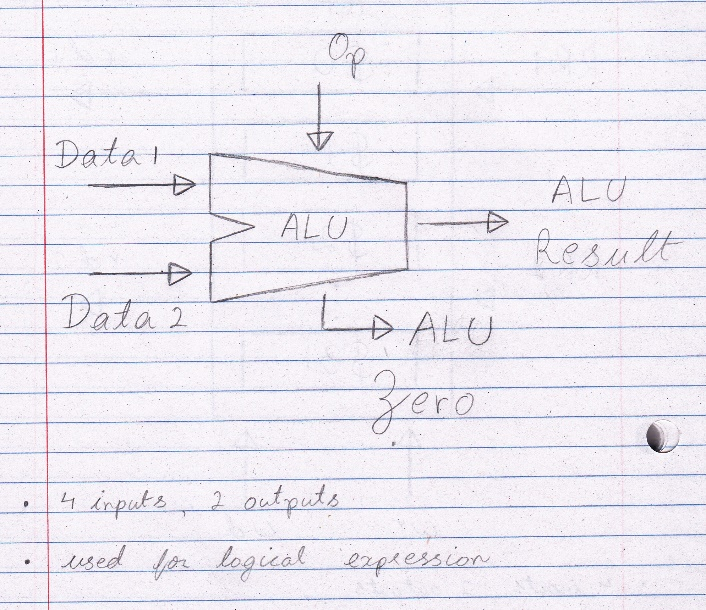 Op
Data 1
ALU
ALU
Result
Data 2
ALU
Zero
• 4 inputs, 2 outputs
• used for logical expression